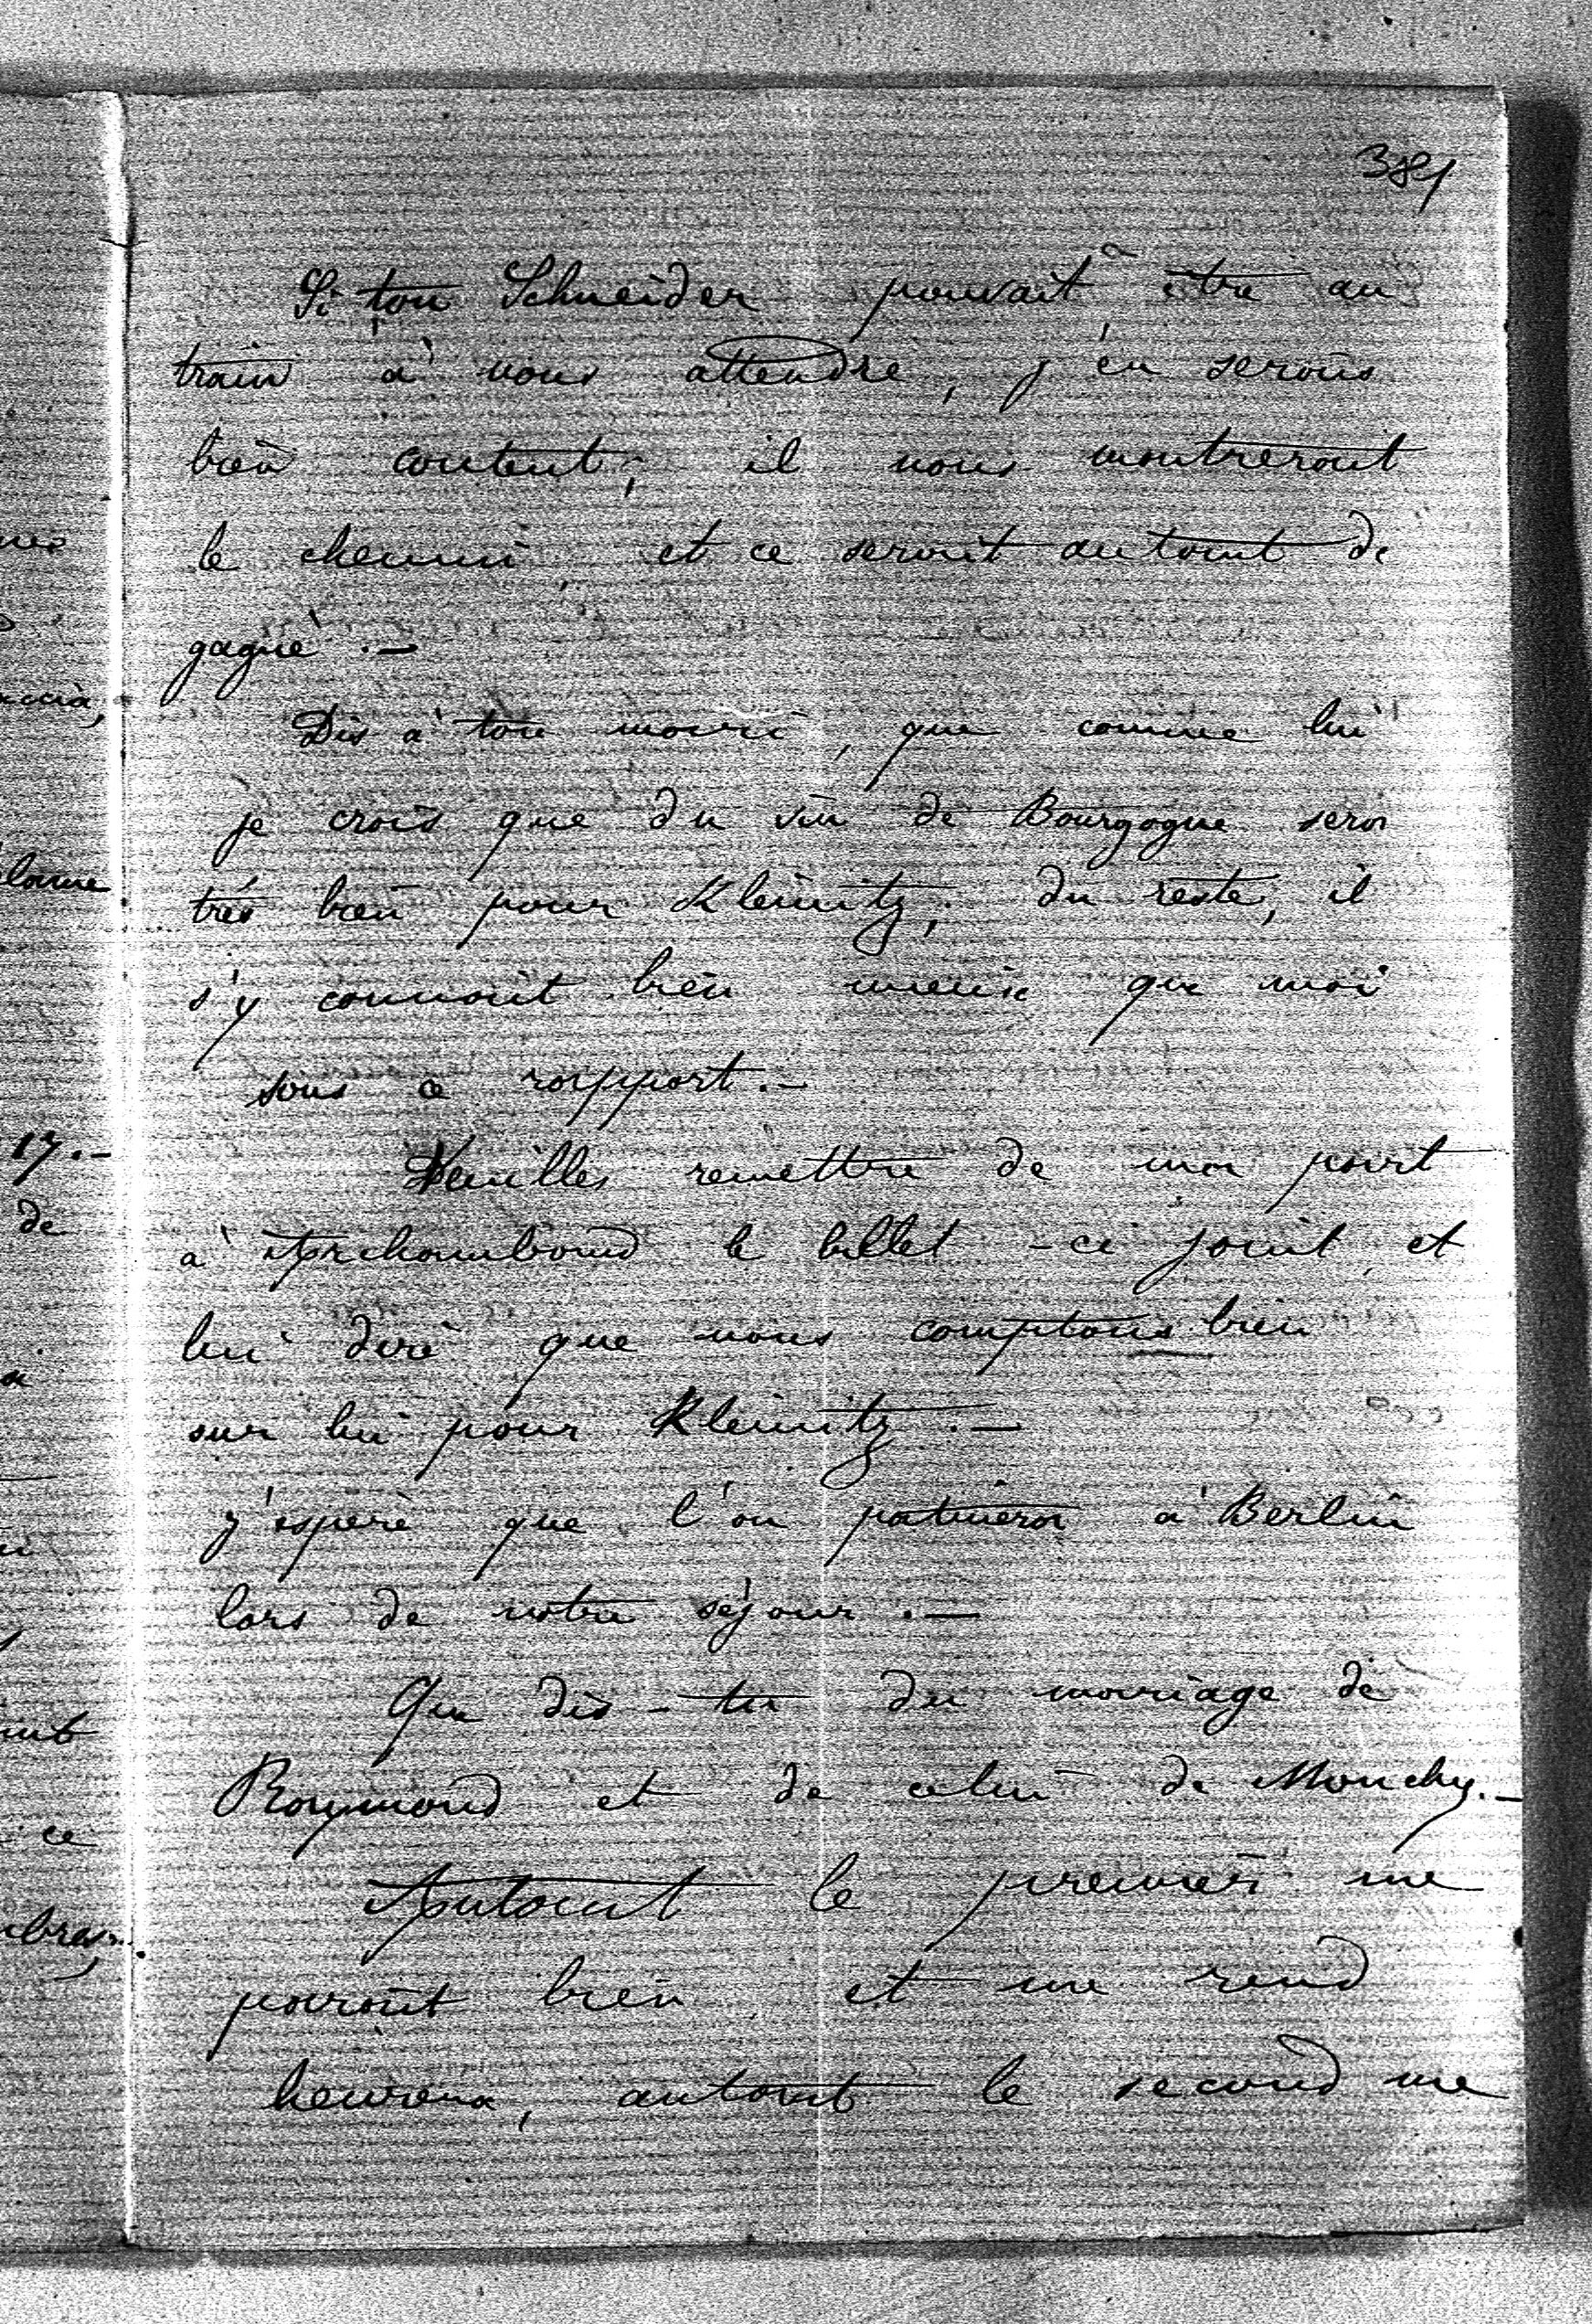 381
Si ton Schneider pouvait être au
train à nous attendre, j'en serais
bien content; il nous montrerait
le chemin, et ce serait autant de
gagné. —
Dis à ton mari, que comme lui
je crois que du vin de Bourgogne sera
très bien pour Kleinitz; du reste, il
s'y connait bien mieux que moi
sous ce rapport. —
Veuilles remettre de ma part
à Archambaud le billet - ci joint, et
lui dire que nous comptons bien
sur lui pour Kleinitz. —
J'espère que l'on patinera à Berlin
lors de notre séjour. —
Que dis-tu du mariage de
Raymond et de celui de Mouchy. —
Autant le premier me
parait bien, et me rend
heureux, autant le second me
17. —
de
ce